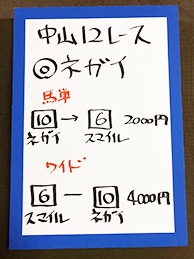 中山12レース
◎ネガイ
馬単
10→6 2000円
ネガイ スマイル
ワイド
6－10 4000円
スマイル ネガイ